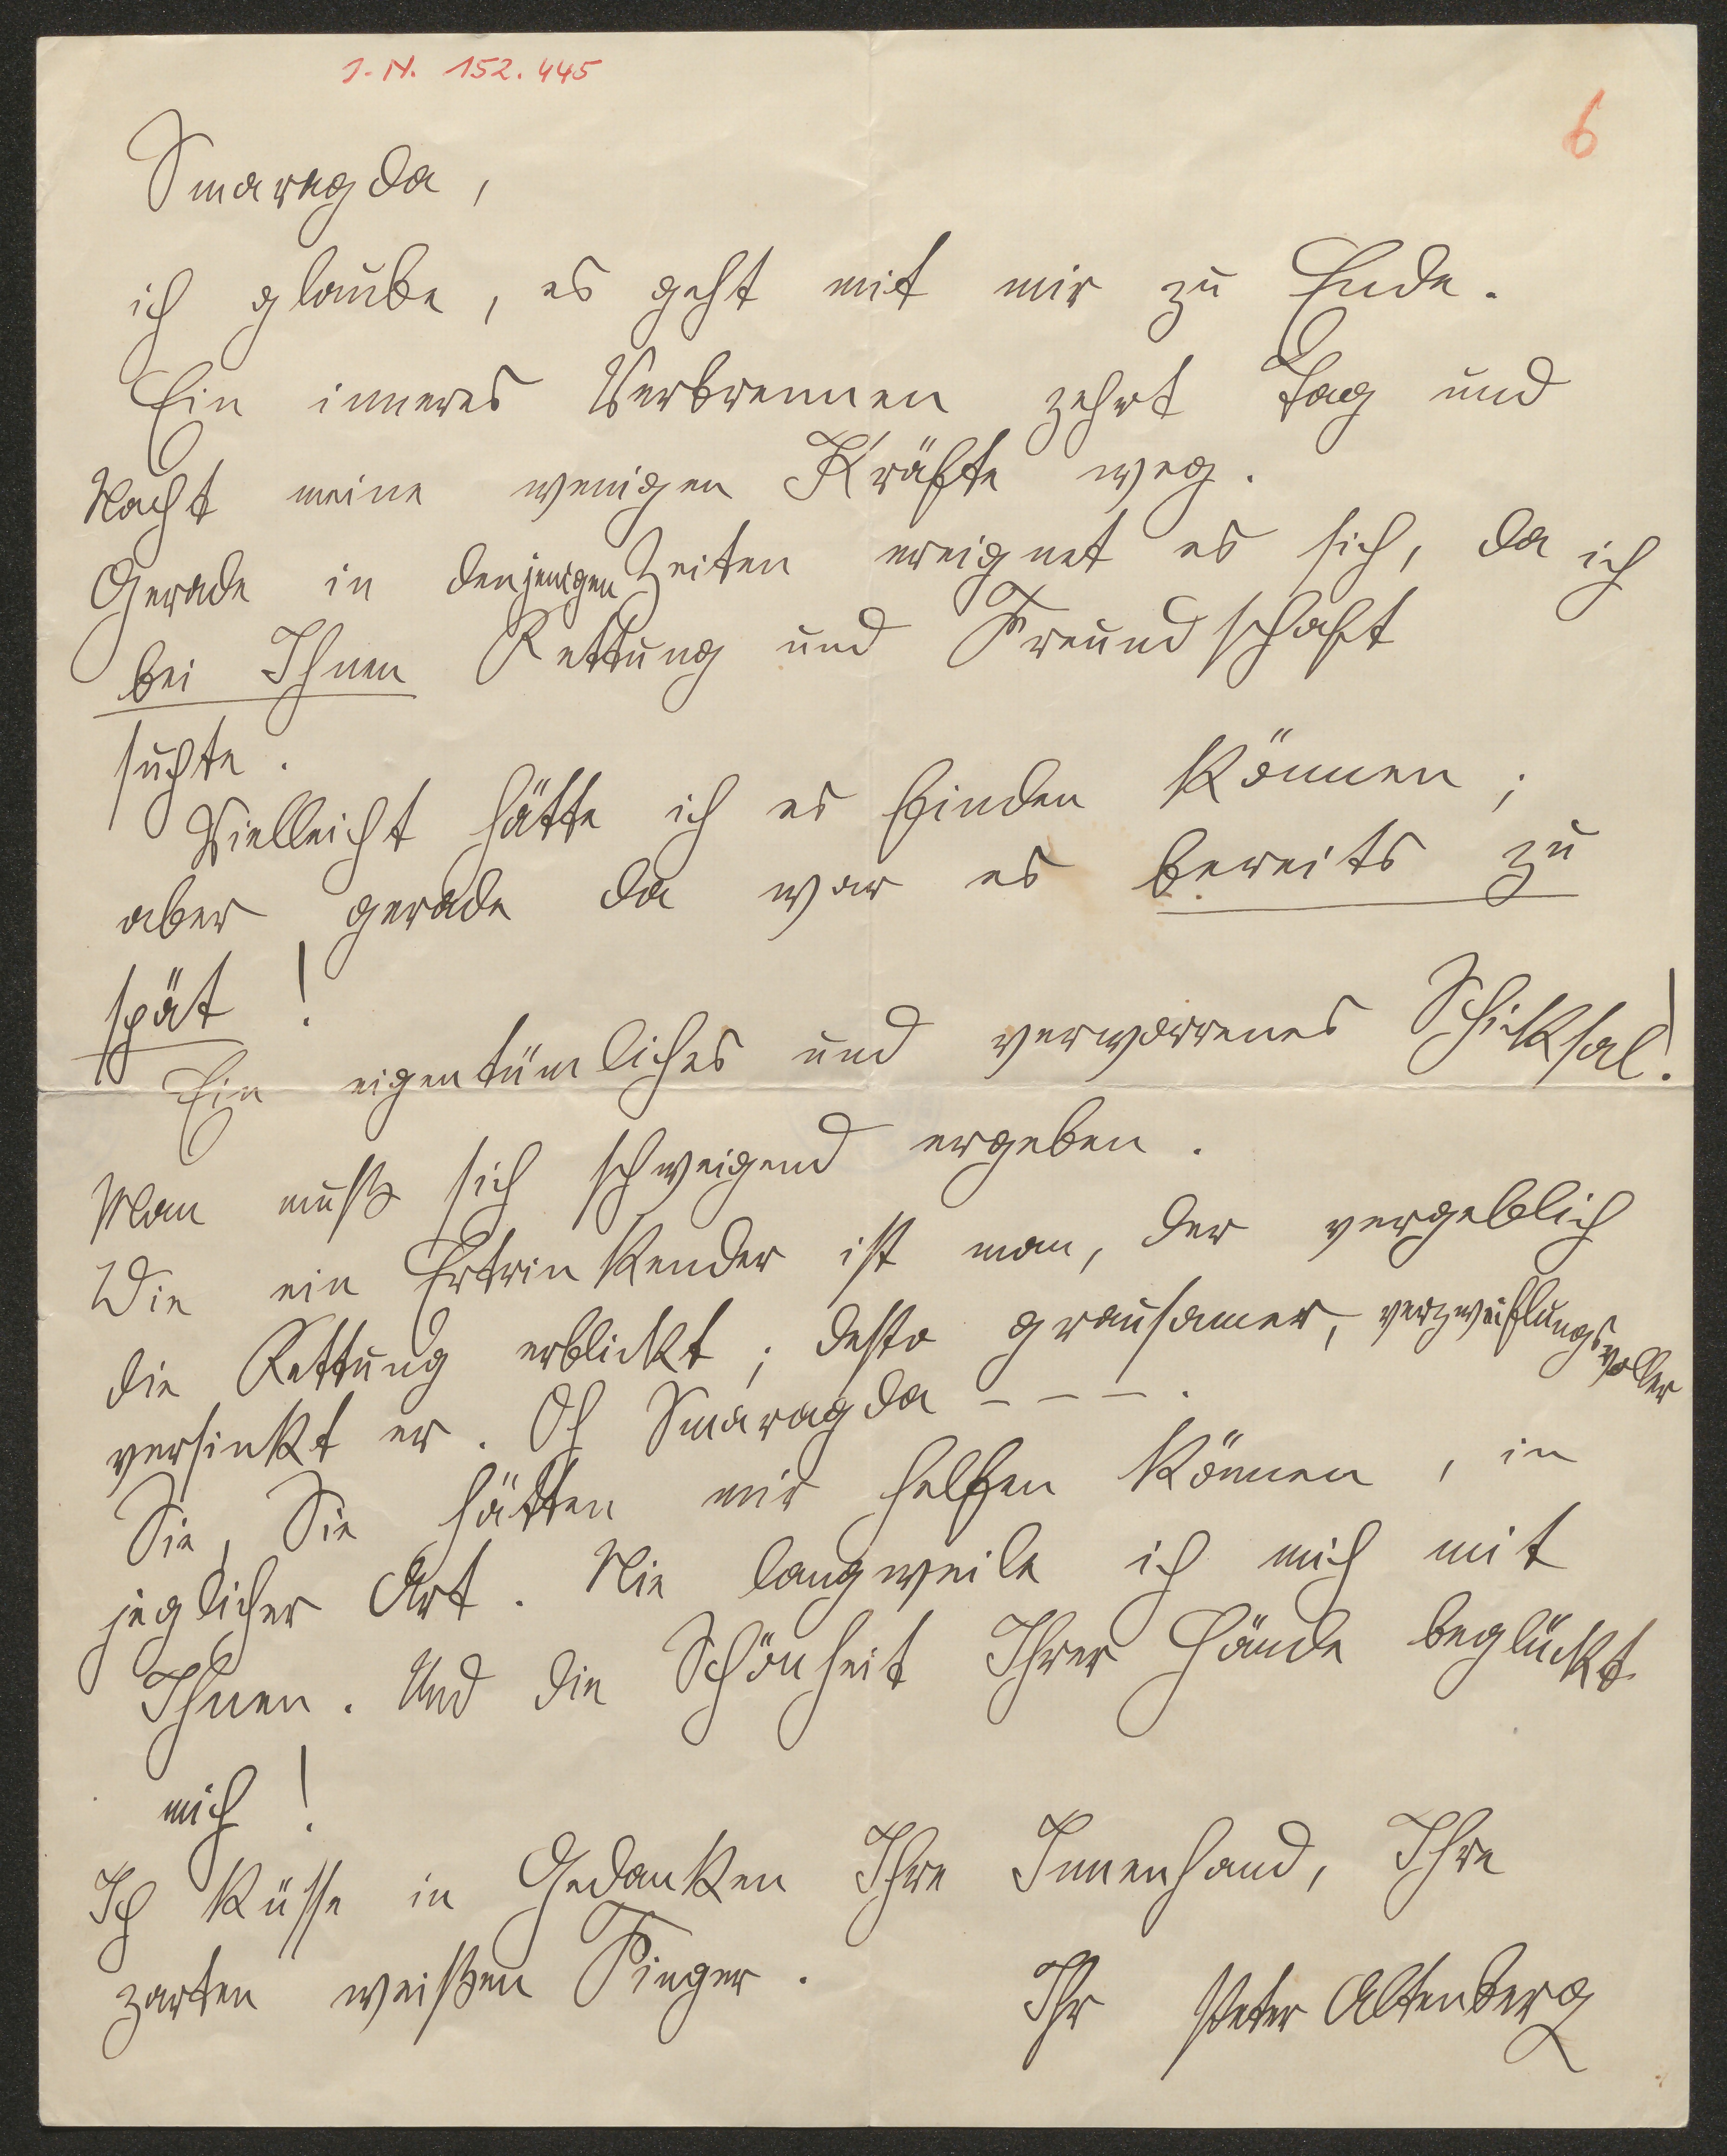 J. N. 152.445
6
Smaragda,
ich glaube, es geht mit mir zu Ende.
Ein inneres Verbrennen zehrt Tag und
Nacht meine wenigen Kräfte weg.
Gerade in denjenigen Zeiten ereignet es sich, da ich
bei Ihnen Rettung und Freundschaft
suchte.
Vielleicht hätte ich es finden können;
aber gerade da war es bereits zu
spät!
Ein eigentümliches und verworrenes Schicksal!
Man muß sich schweigend ergeben.
Wie ein Ertrinkender ist man, der vergeblich
die Rettung erblickt; desto grausamer, verzweiflungsvoller
versinkt er. Oh Smaragda - - - .
Sie, Sie hätten mir helfen können, in
jeglicher Art. Nie langweile ich mich mit
Ihnen. Und die Schönheit Ihrer Hände beglückt
mich!
Ich küsse in Gedanken Ihre Innenhand, Ihre
zarten weißen Finger.
Ihr Peter Altenberg